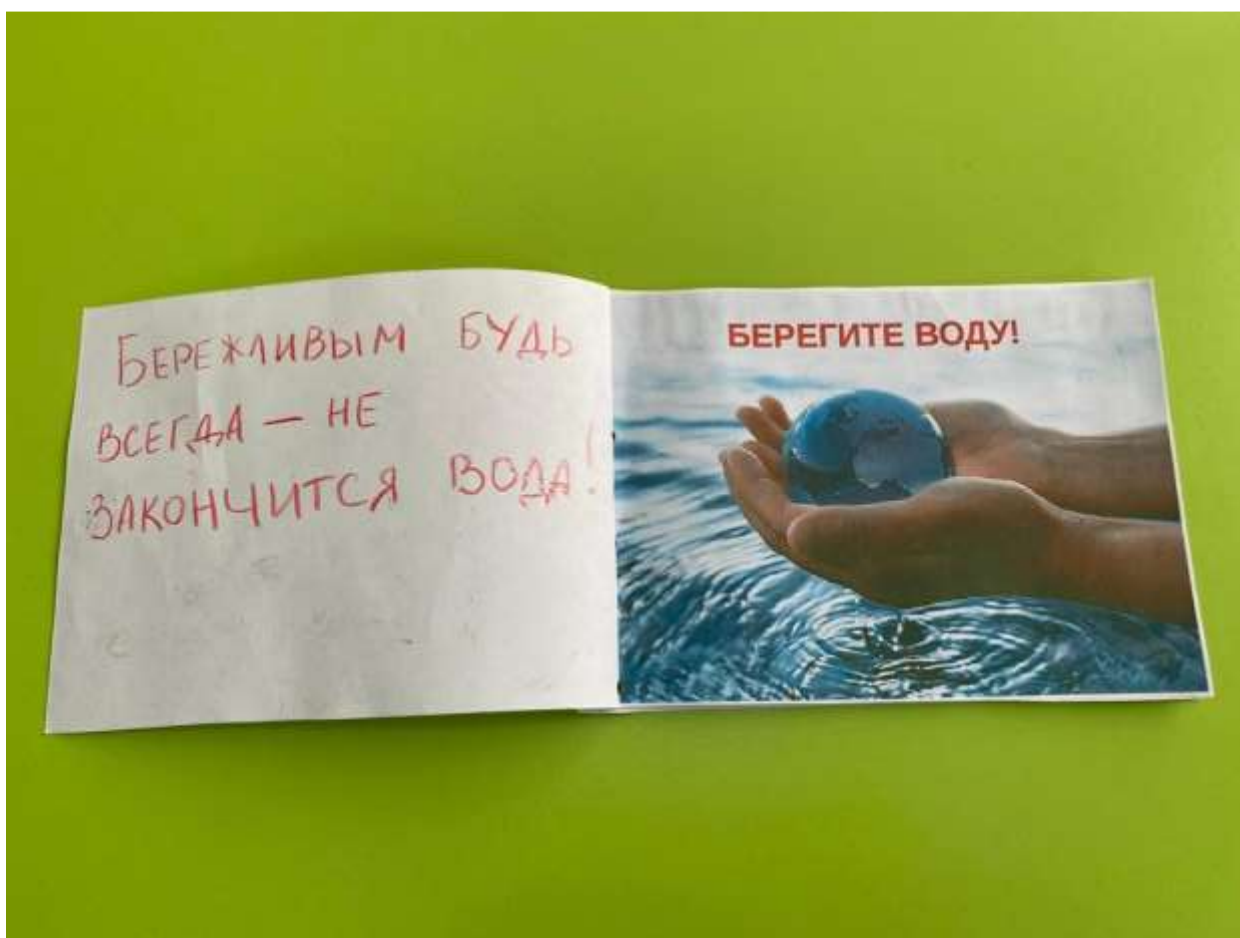 БЕРЕЖЛИВЫМ БУДЬ
ВСЕГДА — НЕ
ЗАКОНЧИТСЯ ВОДА!
БЕРЕГИТЕ ВОДУ!